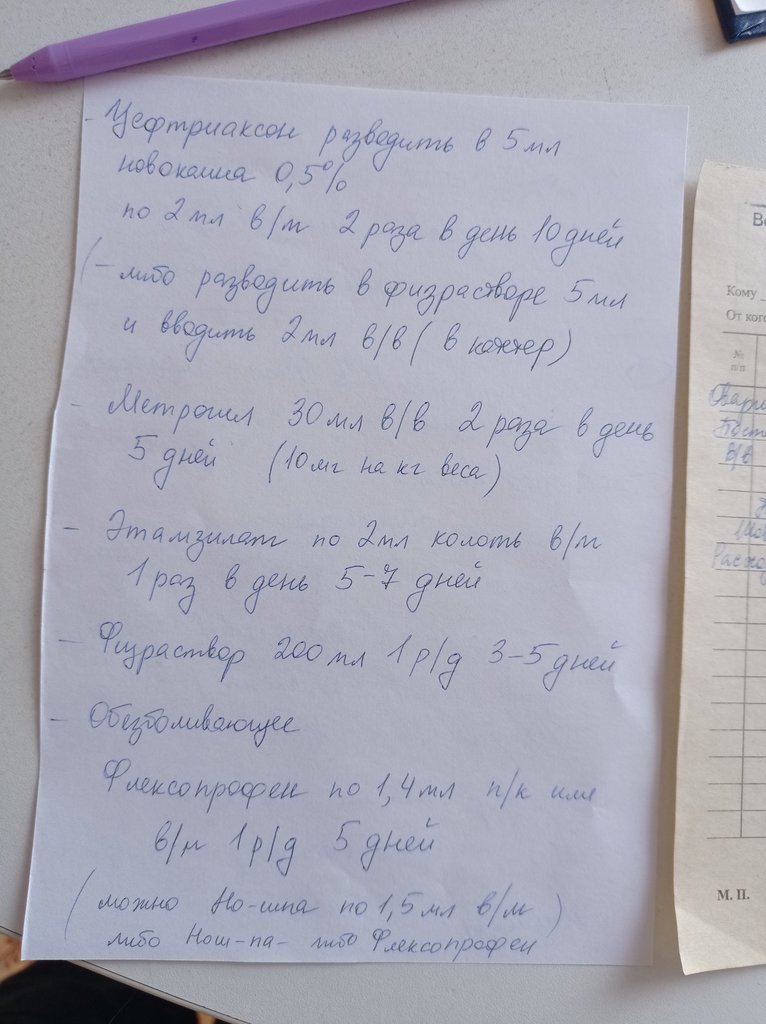 - Цефтриаксон разводить в 5 мл
новокаина 0,5%
по 2 мл в/м 2 раза в день 10 дней
(- либо разводить в физрастворе 5 мл
и вводить 2 мл в/в ( в
- Метрогил 30 мл в/в 2 раза в день
5 дней (10 мг на кг веса)
- Этамзилат по 2 мл колоть в/м
1 раз в день 5-7 дней
- Физраствор 200 мл 1 р/д 3-5 дней
- Обезболивающее
Флексопрофен по 1,4 мл п/к или
в/м 1 р/д 5 дней
(можно Но-шпа по 1,5 мл в/м)
либо Нош-па- либо Флексопрофен
Кому
От
№
п/п
в/в
М. П.